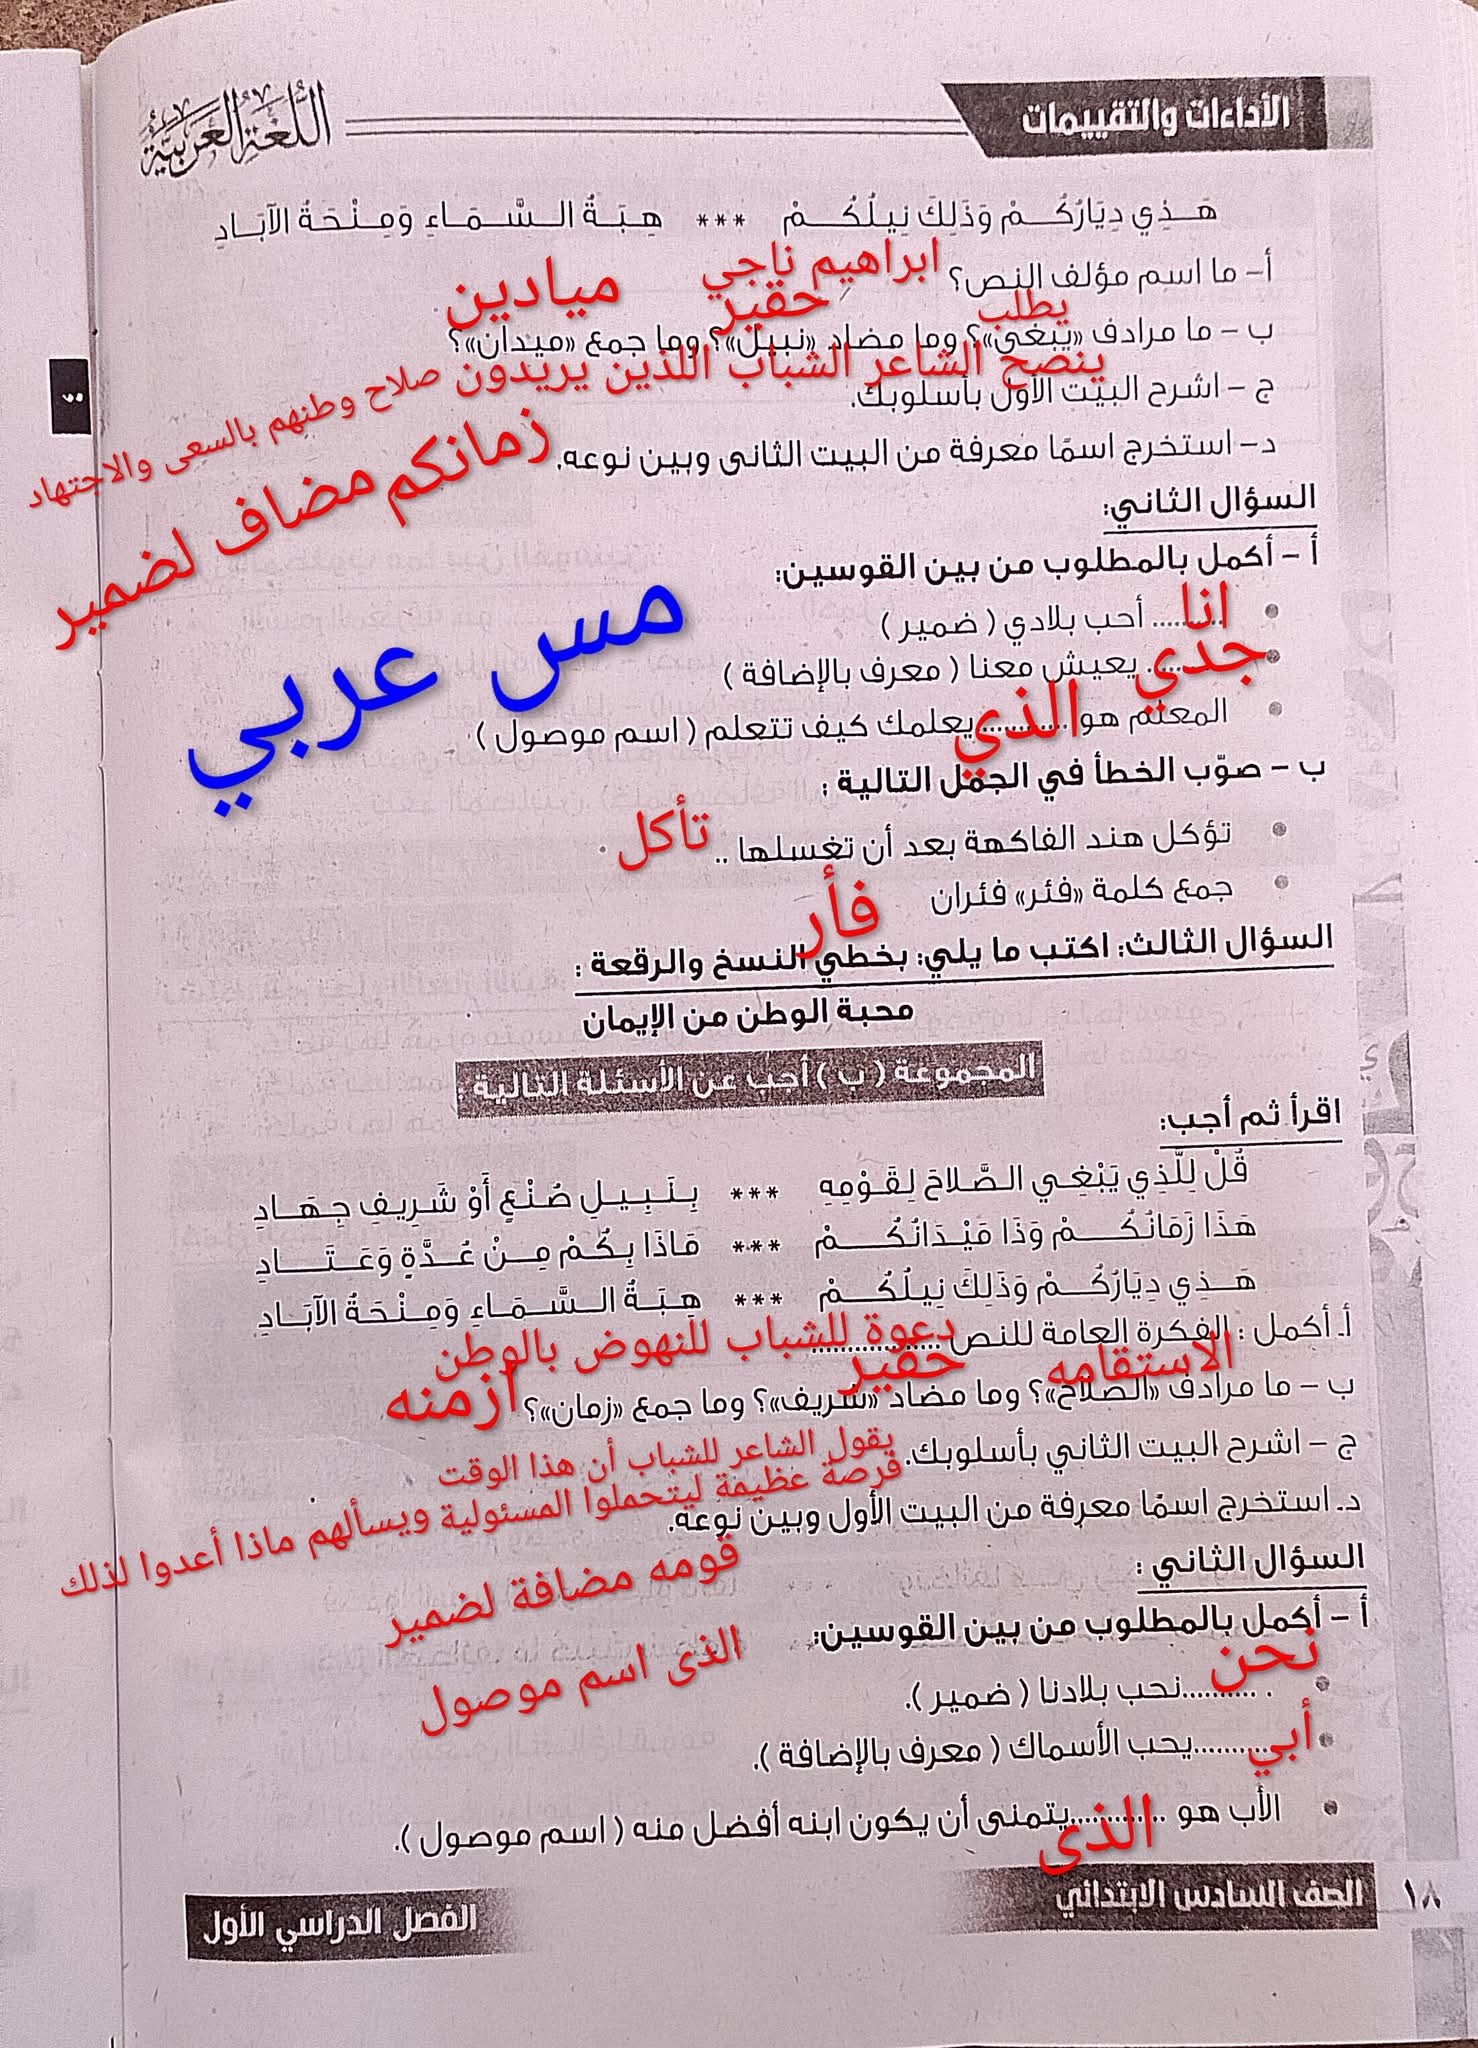 الأداءات والتقييمات
اللُّغَةُ العَرَبِيَّةُ
هَـذِي دِيَارُكُـمْ وَذَلِكَ نِيلُكُـمْ *** هِبَـةُ الـسَّـمَـاءِ وَمِنْحَةُ الآبَـادِ
أ– ما اسم مؤلف النص؟ ابراهيم ناجي
ميادين
حقير
يطلب
ب – ما مرادف «يبغي»؟ وما مضاد «نبيل»؟ وما جمع «ميدان»؟
ينصح الشاعر الشباب اللذين يريدون صلاح وطنهم بالسعى والاجتهاد
ج – اشرح البيت الأول بأسلوبك.
د– استخرج اسمًا معرفة من البيت الثانى وبين نوعه.
زمانكم مضاف لضمير
السؤال الثاني:
أ – أكمل بالمطلوب من بين القوسين:
• انا .......... أحب بلادي ( ضمير )
• جدي .......... يعيش معنا ( معرف بالإضافة )
• المعلم هو الذي .......... يعلمك كيف تتعلم ( اسم موصول )
مس عربي
ب – صوّب الخطأ في الجمل التالية :
• تؤكل هند الفاكهة بعد أن تغسلها .. تأكل
• جمع كلمة «فئر» فئران فأر
السؤال الثالث: اكتب ما يلي: بخطي النسخ والرقعة :
محبة الوطن من الإيمان
المجموعة ( ب ) أجب عن الأسئلة التالية :
اقرأ ثم أجب:
قُلْ لِلَّذِي يَبْغِـي الـصَّـلاحَ لِقَـوْمِهِ *** بِـنَـبِـيـلِ صُنْـعٍ أَوْ شَـرِيـفِ جِـهَـادِ
هَـذَا زَمَانُكُـمْ وَذَا مَيْـدَانُكُـمْ *** مَاذَا بِكُمْ مِـنْ عُـدَّةٍ وَعَـتَـادِ
هَـذِي دِيَارُكُـمْ وَذَلِكَ نِيلُكُـمْ *** هِبَـةُ الـسَّـمَـاءِ وَمِنْحَةُ الآبَـادِ
أ. أكمل : الفكرة العامة للنص .................. دعوة للشباب للنهوض بالوطن
الاستقامه
حقير
ازمنه
ب – ما مرادف «الصلاح»؟ وما مضاد «شريف»؟ وما جمع «زمان»؟
ج – اشرح البيت الثاني بأسلوبك. يقول الشاعر للشباب أن هذا الوقت
فرصة عظيمة ليتحملوا المسئولية ويسألهم ماذا أعدوا لذلك
د. استخرج اسمًا معرفة من البيت الأول وبين نوعه.
قومه مضافة لضمير
الذى اسم موصول
السؤال الثاني :
أ – أكمل بالمطلوب من بين القوسين:
• نحن ..........نحب بلادنا ( ضمير ).
• أبي ..........يحب الأسماك ( معرف بالإضافة ).
• الأب هو ..........يتمنى أن يكون ابنه أفضل منه ( اسم موصول ).
الذى
١٨
الصف السادس الابتدائي
الفصل الدراسي الأول